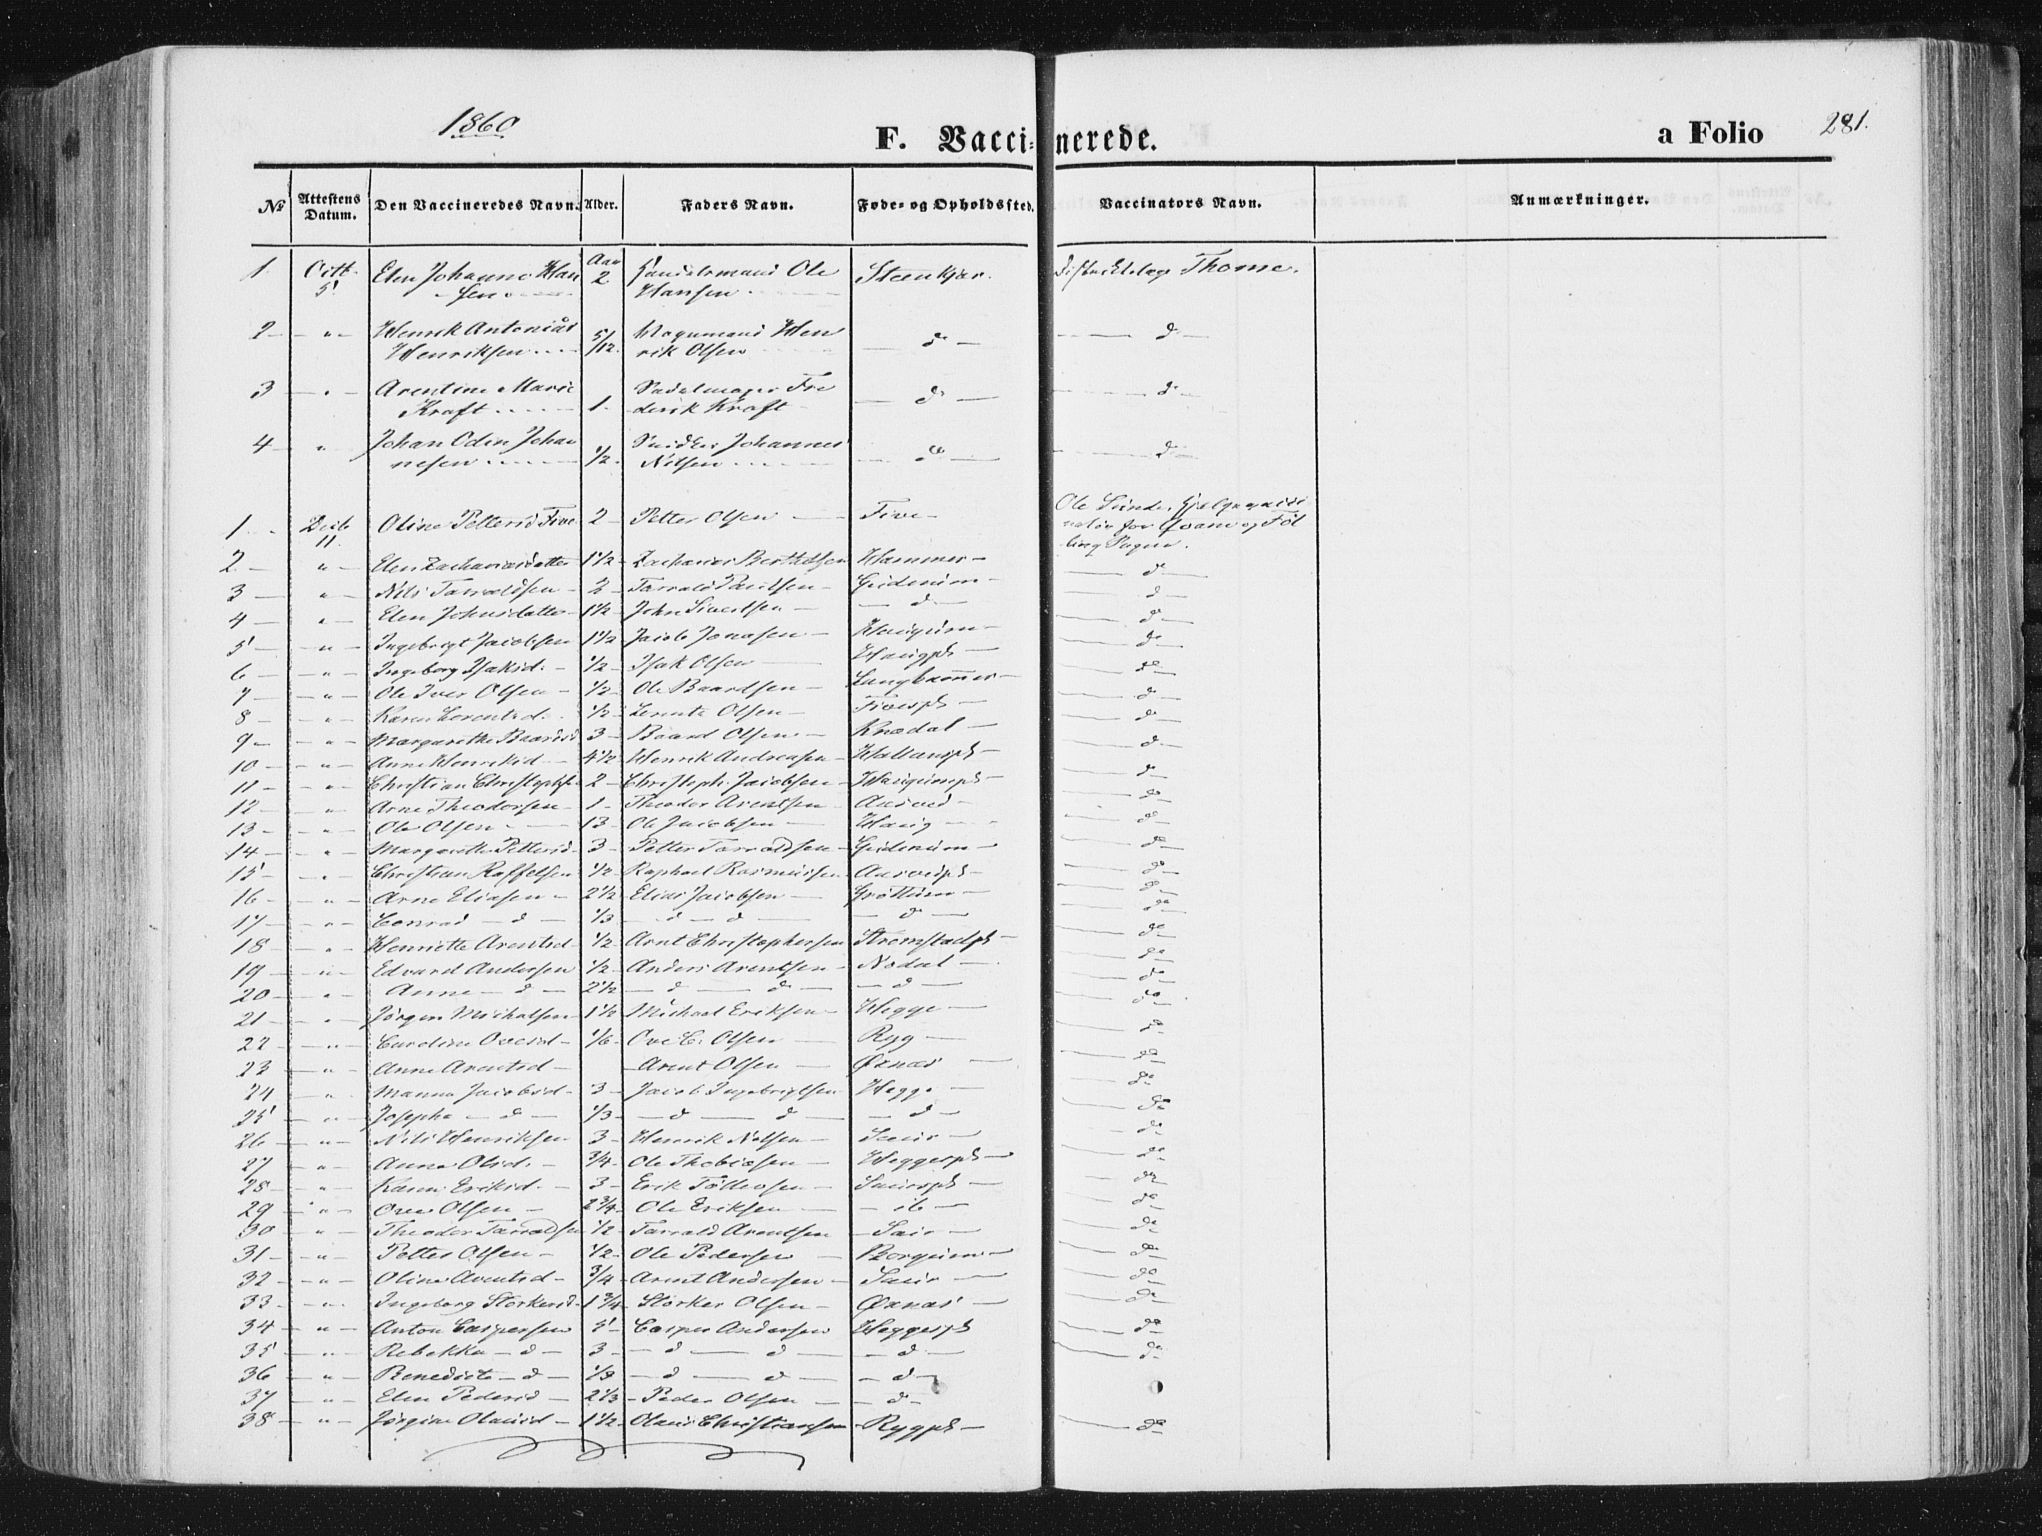 1860
F. Vaccinerede.
a Folio 281.
No Attestens Datum. Den Vaccineredes Navn. Alder. Faders Navn. Føde- og Opholdssted. Vaccinators Navn. Anmærkninger.
1. Octb. Elen Johanne Han Aar 2 Handelsmand Ole Steenkjær. Thome.
5 sen Hansen
2 " Henrik Antoniùs 5/12. Vognmand Hen d°
Henriksen rik Olsen
3 " Arentine Marie 1. Sadelmager Fre d° d°
Kraft derik Kraft
4 " Johan Odin Johan 1/2. Snidker Johannes d° d°
nesen Nilsen
1 Decb Oline Pettersd Five 2 Petter Olsen Five Ole Lùnde,
11. for Qvam og Føl
ling Sogne.
2 " Elen Zachariasdatter 1 1/2 Zacharias Bertholsen Hammer d°
3 " Nils Tarraldsen 2 Tarrald Paulsen Guldenùm d°
4 " Elen Johnsdatter 1 1/2 John Sivertsen d° d°
5 " Ingebrigt Jacobsen 1 1/2 Jacob Jonasen Haùgùm d°
6 " Ingeborg Isaksd. 1/2 Isak Olsen Haugpl d°
7 " Ole Iver Olsen 1/2 Ole Baardsen Langhammer d°
8 " Karen Lorentsd. 1/2 Lornts Olsen Fivespl d°
9 " Margarethe Baardsd 3 Baard Olsen Knædal d°
10 " Anne Henriksd 4 1/2 Henrik Andreasen Hallanspl d°
11 " Christian Christophs. 2 Christoph. Jacobsen Haùgùmspl d°
12 " Arne Theodorsen 1 Theodor Arentsen Aùsved d°
13 " Ole Olsen 13 Ole Jacobsen Haug d°
14 " Margarethe Pettersd. 3 Petter Tarraldsen Guldenùm d°
15 " Christian Raffelsen 1/2 Raphael Rasmùssen Aùsvedpl d°
16 " Arne Eliasen 2 1/2 Elias Jacobsen Grøttùm d°
17 " Conrad d 1/3 d d d° d°
18 " Henriette Arentsd. 1/2 Arnt Christophersen Strømstadpl d°
19 " Edvard Andersen 1/2 Anders Arentsen Nødal d°
20 " Anne d 2 1/2 d d d d°
21 " Jørgen Michalsen 1 1/2 Michael Eriksen Hegge d°
22 " Caroline Ovesd 1/6 Ove C. Olsen Ryg d°
23 " Anne Arentsd Arent Olsen Øxnas d°
24 " Manna Jacobsd. 3 Jacob Ingebrigtsen Hegge d°
25 " Josepha d 1/3 d d d d°
26 " Nils Henriksen 3 Henrik Nilsen Saùr d°
27 " Anne Olsd. 3/4 Ole Thobiasen Heggespl d°
28 " Karen Eriksd. 3 Erik Tollevsen Saùrspl d°
29 " Ove Olsen 2 3/4 Ole Eriksen ib d°
30 " Theodor Tarraldsen 1/2 Tarrald Arentsen Saùr d°
31 " Petter Olsen 1/2 Ole Pedersen Borgùm d°
32 " Oline Arentsd 3/4 Arent Andersen Saùr d°
33 " Ingeborg Storkersd. 1 3/4 Storker Olsen Øxnas d°
34 " Anton Caspersen 5 Casper Andersen Heggespl d°
35 " Rebekka d 3 d d d d°
36 " Benedicte d 1/3 d d d
37 " Elen Pedersd 2 1/3 Peder Olsen d°
38 " Jørgine Olausd 1 1/2 Olaus Christiansen Rygpl d°